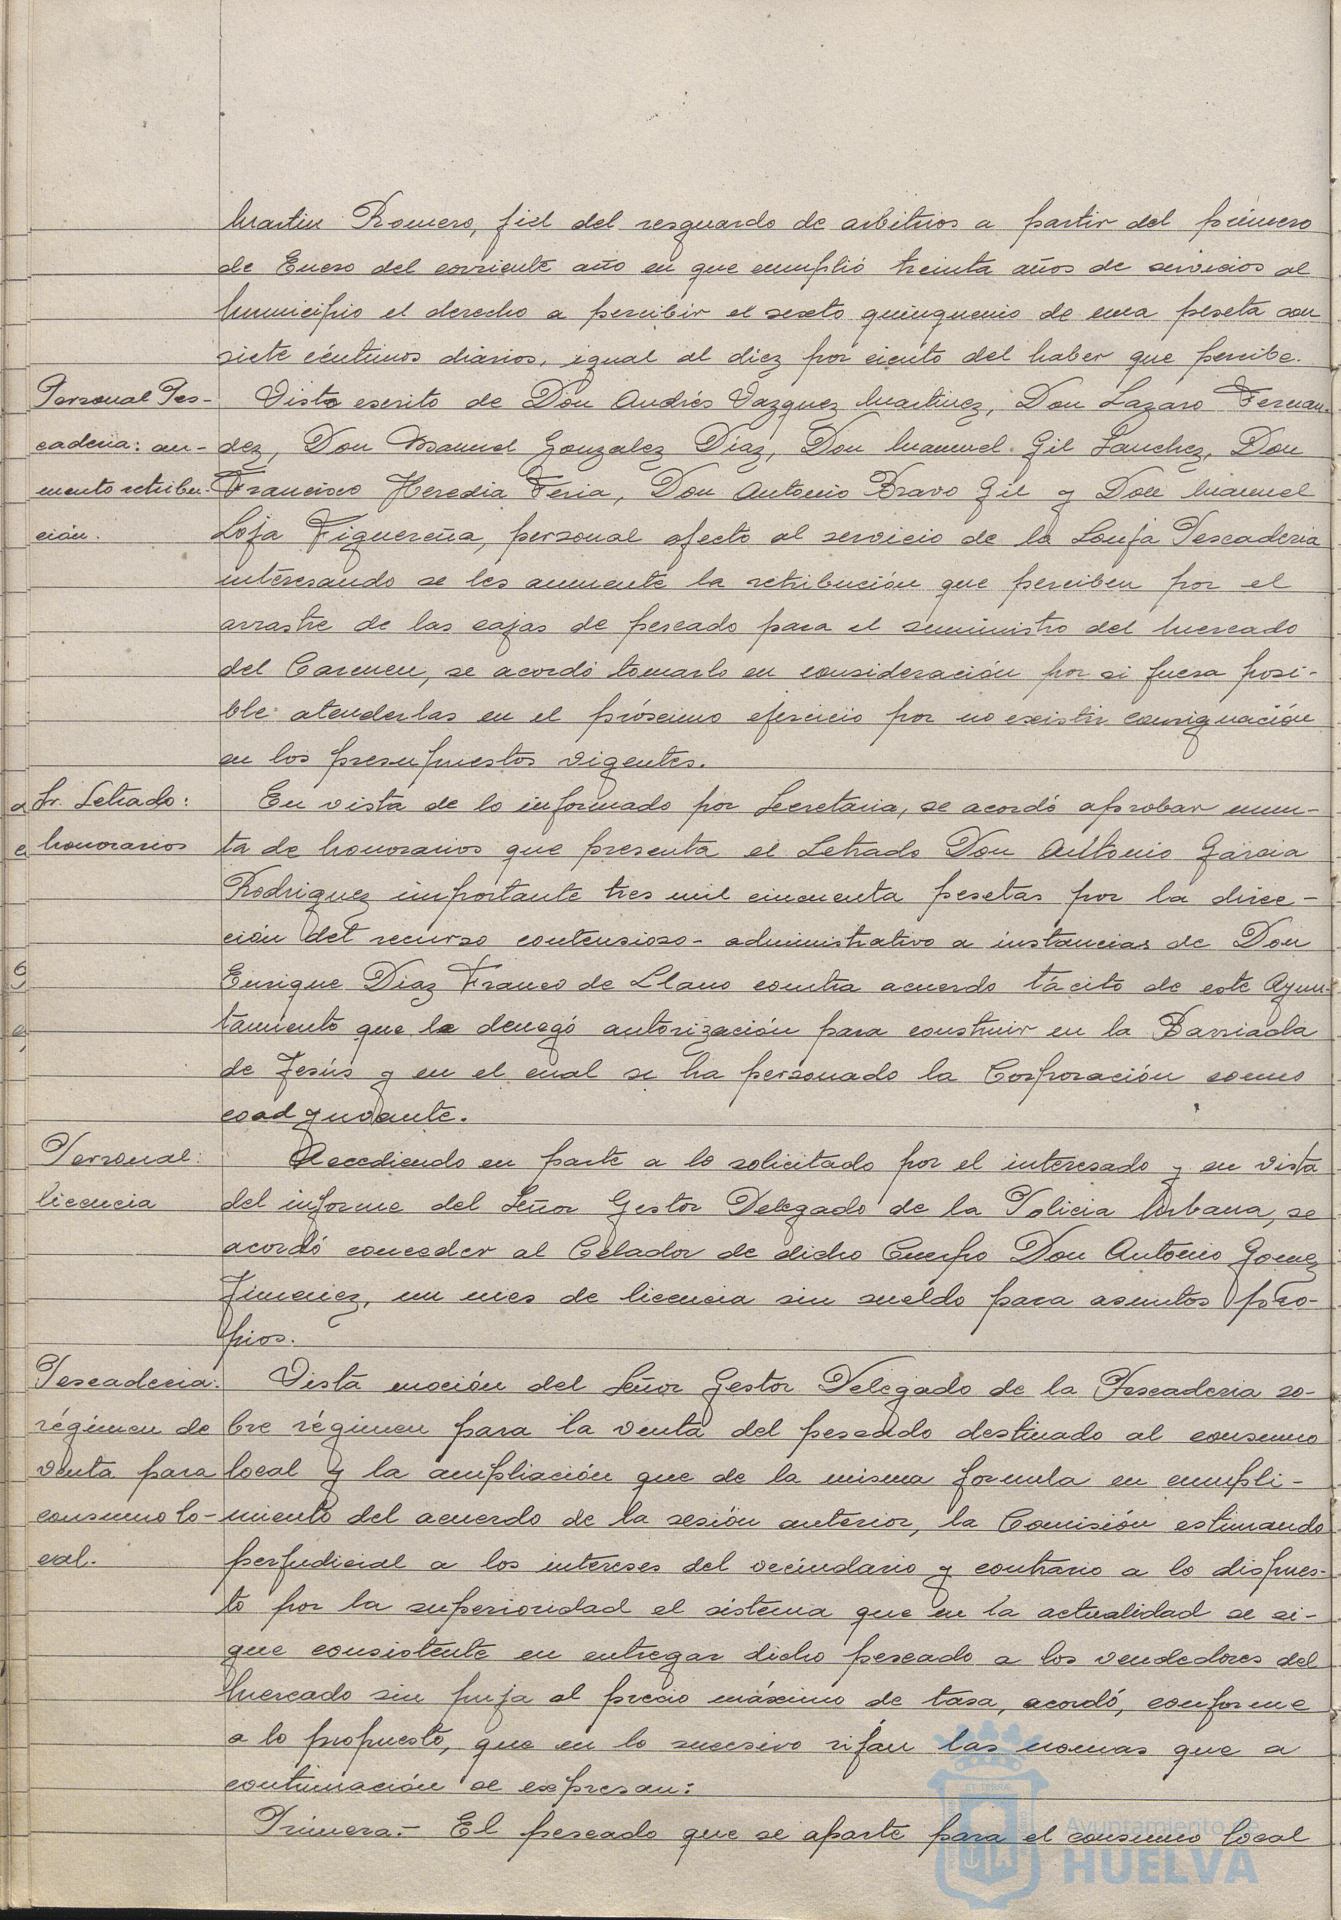 Martin Romero, fiel del resguardo de arbitrios a partir del primero
de Enero del corriente año en que cumplió treinta años de servicios al
Municipio el derecho a percibir el sexto quinquenio de una peseta con
siete céntimos diarios, igual al diez por ciento del haber que percibe.
Personal Pes-
cadería: au-
mento retribu-
ción.
Visto escrito de Don Andrés Vazquez Martinez, Don Lazaro Fernan-
dez, Don Manuel Gonzalez Díaz, Don Manuel Gil Sanchez, Don
Francisco Heredia Feria, Don Antonio Bravo Gil y Don Manuel
Loja Figuereña, personal afecto al servicio de la Lonja Pescaderia
interesando se les aumente la retribución que perciben por el
arrastre de las cajas de pescado para el suministro del Mercado
del Carmen, se acordó tomarlo en consideración por si fuera posi-
ble atenderlas en el próximo ejercicio por no existir consignación
en los presupuestos vigentes.
Sr. Letrado:
honorarios
En vista de lo informado por Secretaria, se acordó aprobar minu-
ta de honorarios que presenta el Letrado Don Antonio Garcia
Rodriguez importante tres mil cincuenta pesetas por la direc-
ción del recurso contensioso-administrativo a instancias de Don
Enrique Diaz Franco de Llano contra acuerdo tácito de este Ayun-
tamiento que le denegó autorización para construir en la Barriada
de Jesús y en el cual se ha personado la Corporación como
coadyuvante.
Personal:
licencia
Accediendo en parte a lo solicitado por el interesado y en vista
del informe del Señor Gestor Delegado de la Policia Urbana, se
acordó conceder al Celador de dicho Cuerpo Don Antonio Gomez
Jimenez, un mes de licencia sin sueldo para asuntos pro-
pios.
Pescaderia:
régimen de
venta para
consumo lo-
cal.
Vista moción del Señor Gestor Delegado de la Pescaderia so-
bre régimen para la venta del pescado destinado al consumo
local y la ampliación que de la misma formula en cumpli-
miento del acuerdo de la sesión anterior, la Comisión estimando
perjudicial a los intereses del vecindario y contrario a lo dispues-
to por la superioridad el sistema que en la actualidad se si-
gue consistente en entregar dicho pescado a los vendedores del
Mercado sin puja al precio máximo de tasa, acordó, conforme
a lo propuesto, que en lo sucesivo rijan las normas que a
continuación se expresan:
Primera.- El pescado que se aparte para el consumo local
Ayuntamiento de
HUELVA